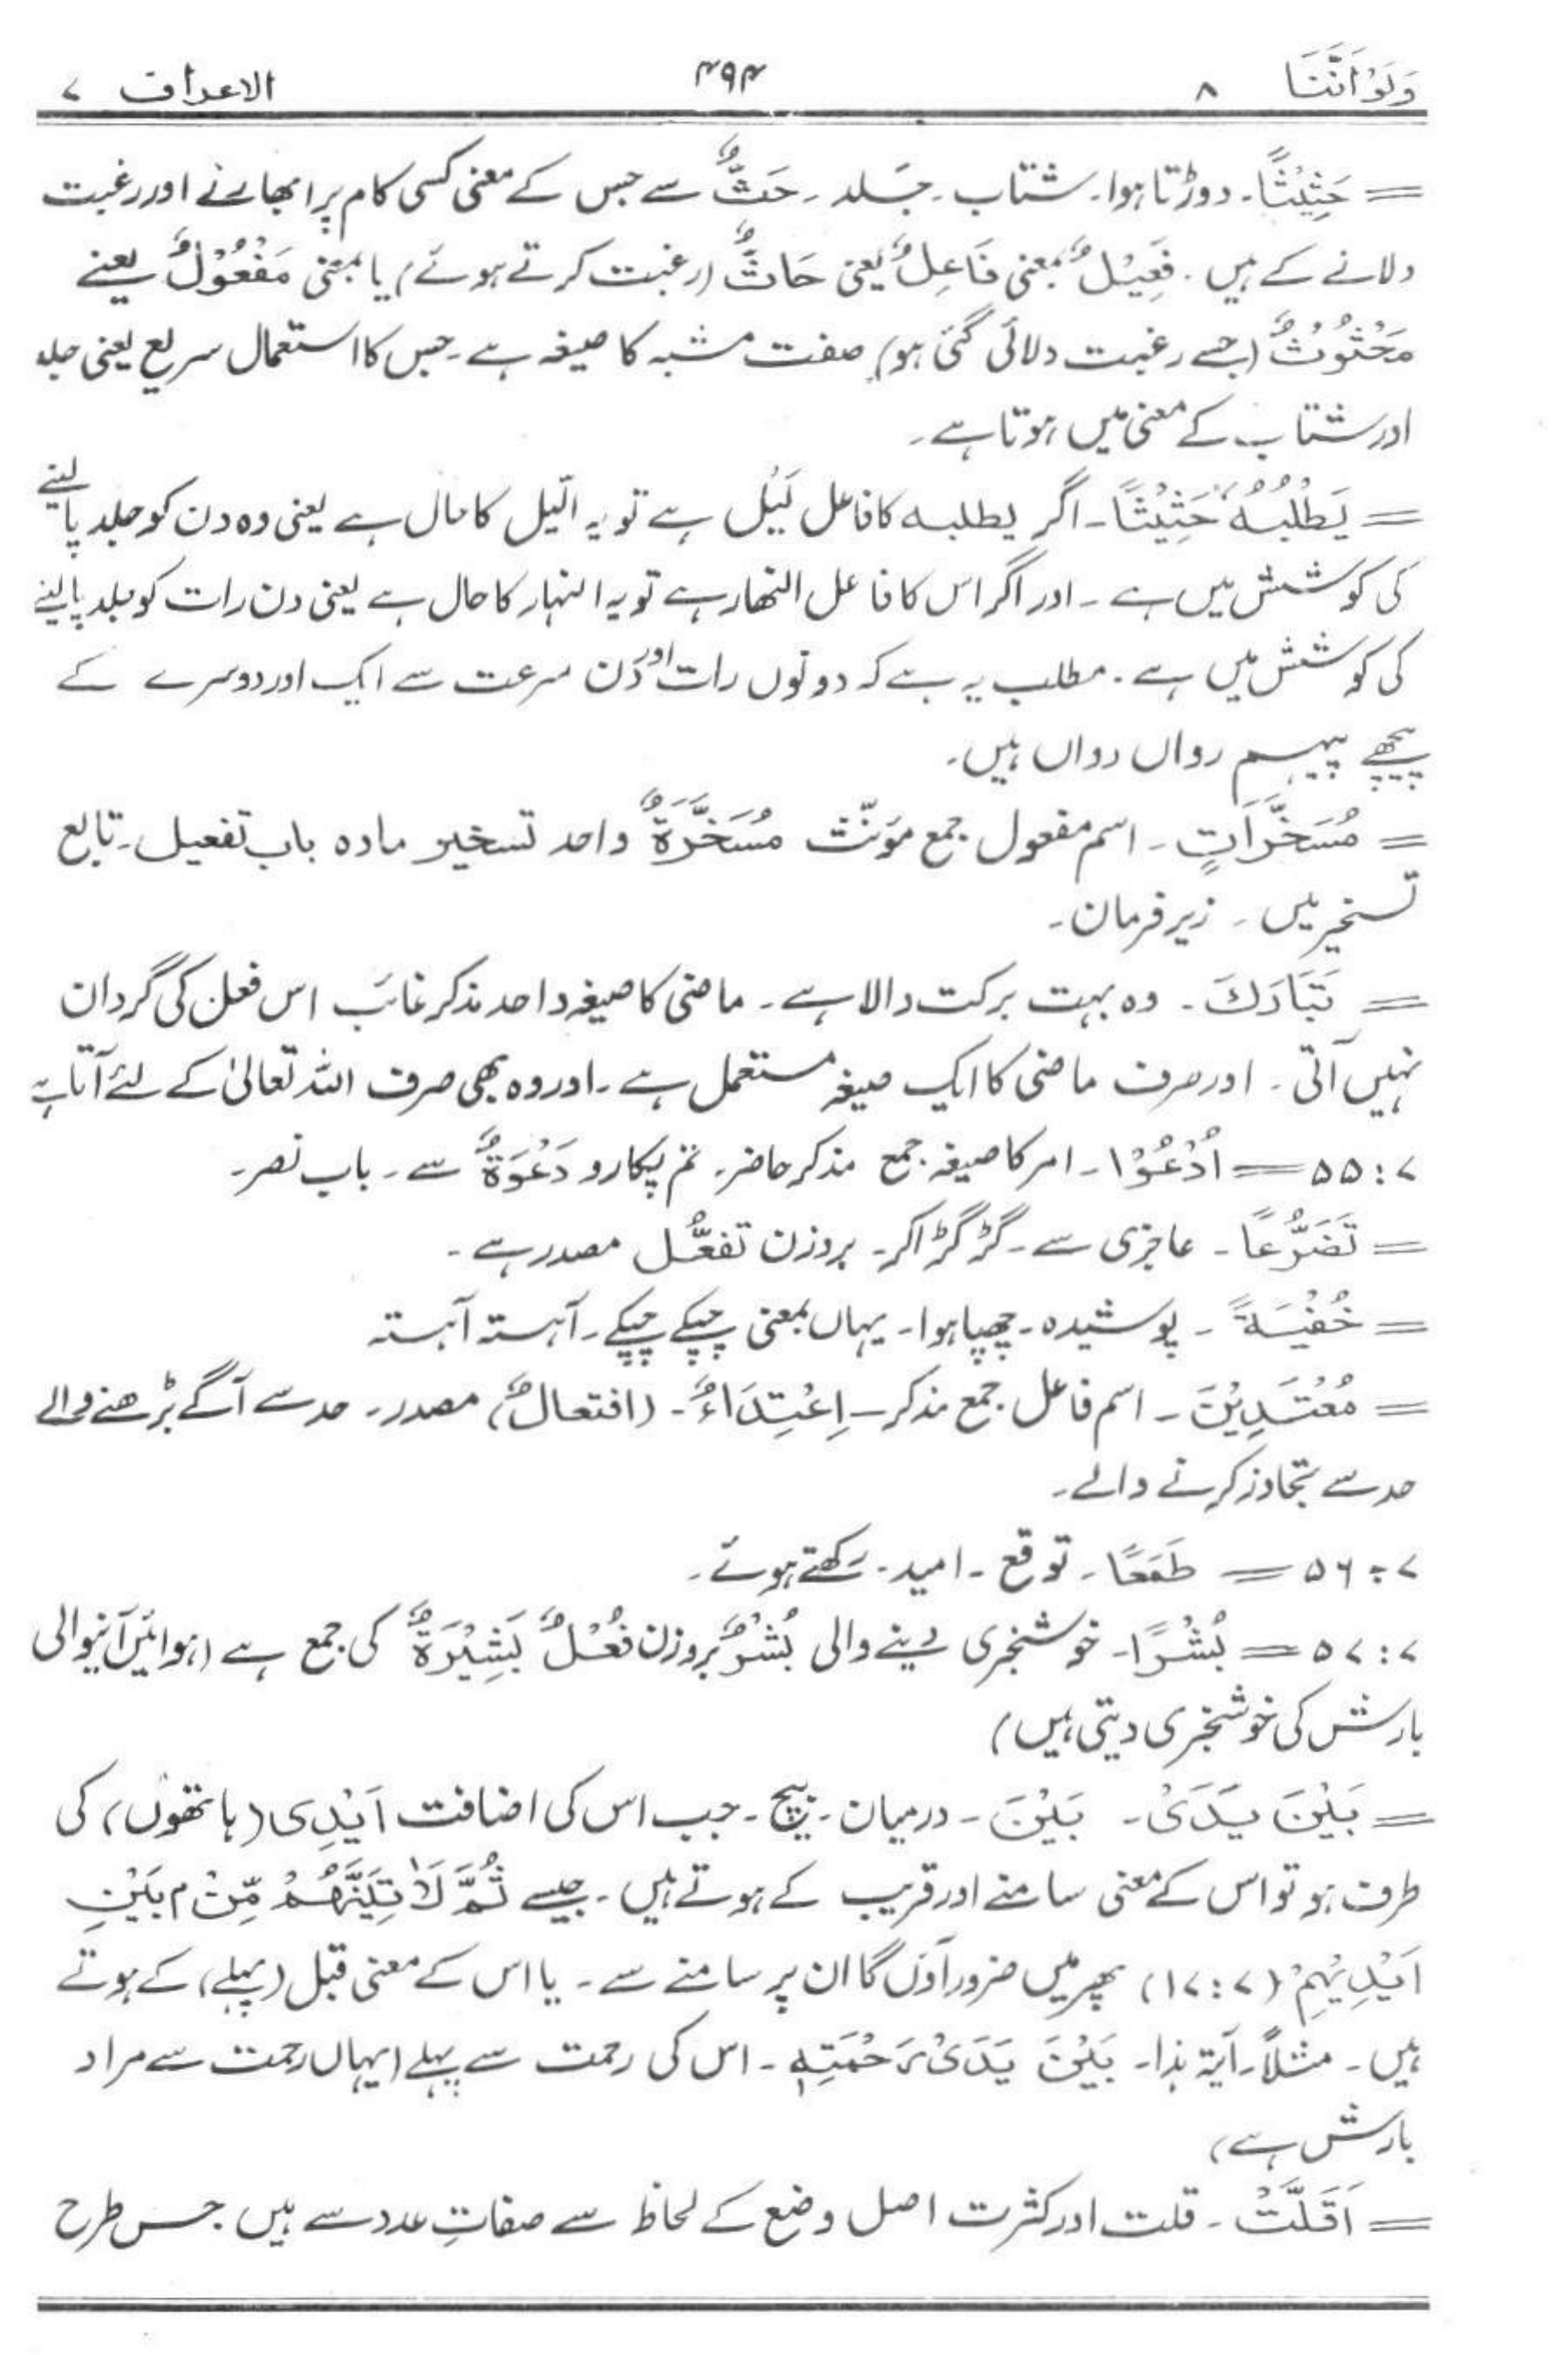 وَلَوْ اَنَّنَا ۸ ۴۹۴ الاعراف ۷
= حَثِيْثًا۔ دوڑتا ہوا۔ شتاب۔ جَلد۔ حَثٌّ سے جس کے معنی کسی کام پر ابھارنے اور رغبت
دلانے کے ہیں۔ فَعِيْلٌ بمعنی فَاعِلٌ یعنی حَاثٌّ (رغبت کرتے ہوئے) یا بمعنی مَفْعُوْلٌ یعنے
مَحْثُوْثٌ (جسے رغبت دلائی گئی ہو) صفت مشبہ کا صیغہ ہے۔ جس کا استعمال سریع یعنی جلد
اور شتاب کے معنی میں ہوتا ہے۔
= يَطْلُبُهٗ حَثِيْثًا۔ اگر یطلبہ کا فاعل لَیْل ہے تو یہ الّیل کا حال ہے یعنی وہ دن کو جلد پالینے
کی کوشش میں ہے۔ اور اگر اس کا فاعل النھار ہے تو یہ النہار کا حال ہے یعنی دن رات کو جلد پالینے
کی کوشش میں ہے۔ مطلب یہ ہے کہ دونوں رات اور دن سرعت سے ایک اور دوسرے کے
پیچھے پیہم رواں رواں ہیں۔
= مُسَخَّرَاتٍ۔ اسم مفعول جمع مؤنّث مُسَخَّرَةٌ واحد تسخیر مادہ باب تفعیل۔ تابع
تسخیر میں۔ زیر فرمان۔
= تَبَارَكَ۔ وہ بہت برکت والا ہے۔ ماضی کا صیغہ واحد مذکر غائب اس فعل کی گردان
نہیں آتی۔ اور صرف ماضی کا ایک صیغہ مستعمل ہے۔ اور وہ بھی صرف اللہ تعالیٰ کے لئے آتا ہے
۷:۵۵ = اُدْعُوْا۔ امر کا صیغہ جمع مذکر حاضر۔ تم پکارو دَعْوَةٌ سے۔ باب نصر۔
= تَضَرُّعًا۔ عاجزی سے۔ گڑگڑا کر۔ بروزن تفعُّل مصدر ہے۔
= خُفْيَةً۔ پوشیدہ۔ چھپا ہوا۔ یہاں بمعنی چپکے چپکے۔ آہستہ آہستہ
= مُعْتَدِيْنَ۔ اسم فاعل جمع مذکر۔ اِعْتِدَاءٌ۔ (افتعالٌ) مصدر۔ حد سے آگے بڑھنے والے
حد سے تجاوز کرنے والے۔
۷:۵۶ = طَمَعًا۔ توقع۔ امید۔ رکھتے ہوئے۔
۷:۵۷ = بُشْرًا۔ خوشخبری دینے والی بُشْرٌ بروزن فُعْلٌ بَشِيْرَةٌ کی جمع ہے (ہوائیں آنیوالی
بارش کی خوشخبری دیتی ہیں)
= بَيْنَ يَدَىْ۔ بَيْنَ۔ درمیان۔ بیچ۔ جب اس کی اضافت اَيْدِى (ہاتھوں) کی
طرف ہو تو اس کے معنی سامنے اور قریب کے ہوتے ہیں۔ جیسے ثُمَّ لَاٰتِيَنَّهُمْ مِّنْۢ بَيْنِ
اَيْدِيْهِمْ (۷:۱۷) پھر میں ضرور آؤں گا ان پر سامنے سے۔ یا اس کے معنی قبل (پہلے) کے ہوتے
ہیں۔ مثلاً۔ آیۃ ہذا۔ بَيْنَ يَدَىْ رَحْمَتِهٖ۔ اس کی رحمت سے پہلے (یہاں رحمت سے مراد
بارش ہے)
= اَقَلَّتْ۔ قلت اور کثرت اصل وضع کے لحاظ سے صفاتِ عدد سے ہیں جس طرح